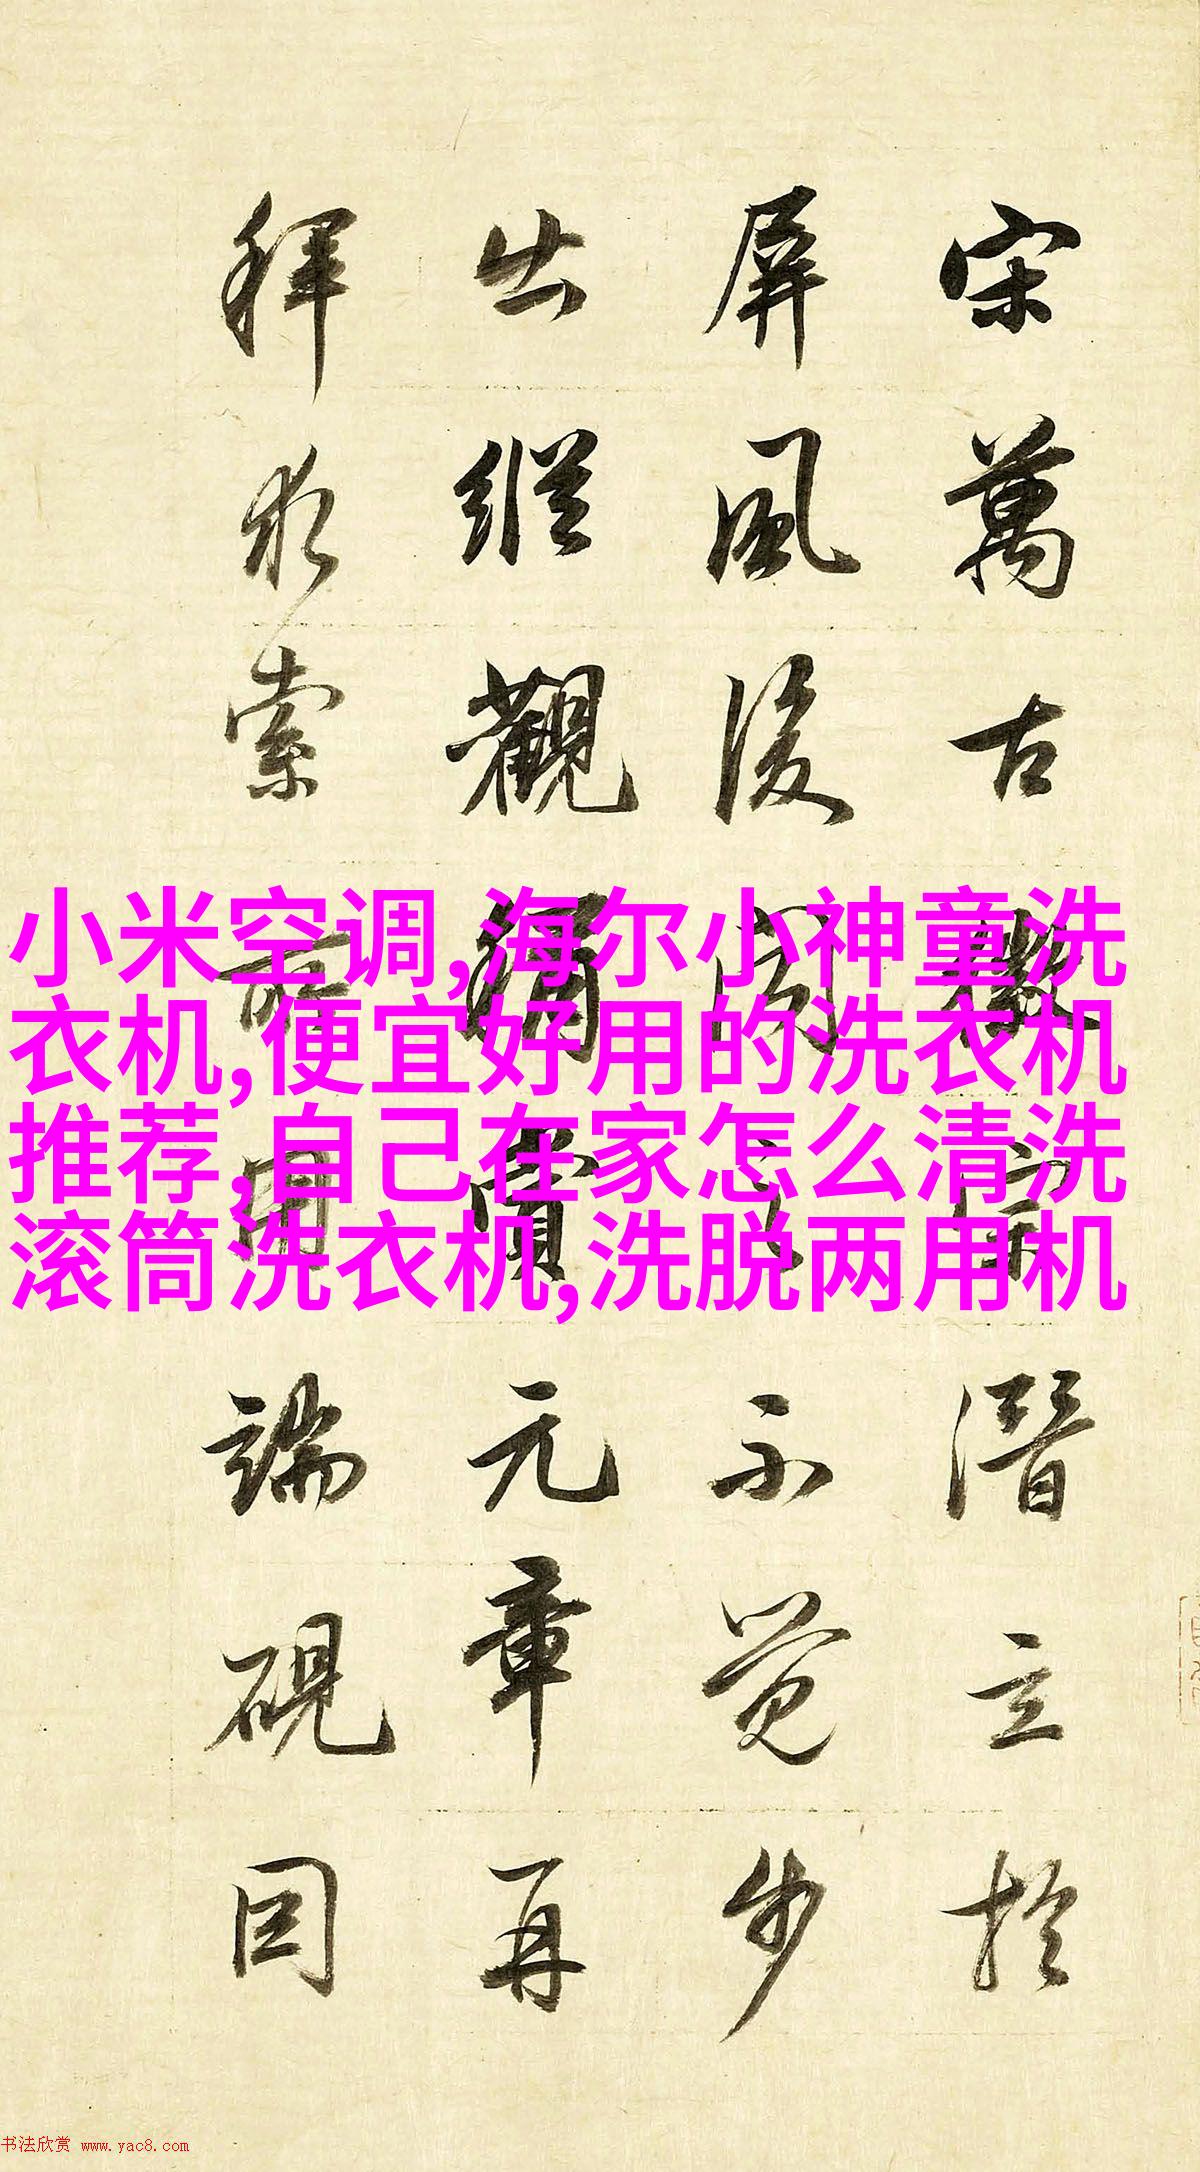 宋萬古徽宗潛立於
屏風後聞之不覺步
出縱觀稱賞元章再
拜求索前用端硯因
小米空调,海尔小神童洗
衣机,便宜好用的洗衣机
推荐,自己在家怎么清洗
滚筒洗衣机,洗脱两用机
书法欣赏 www.yac8.com